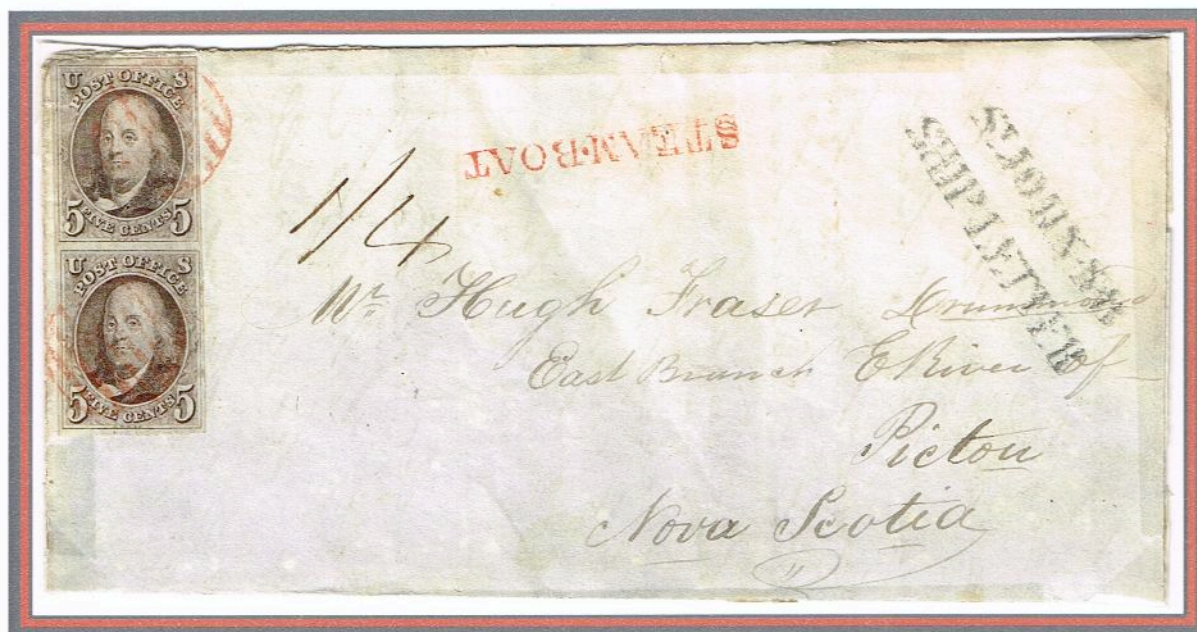 U S
POST OFFICE
5 FIVE CENTS 5
U S
POST OFFICE
5 FIVE CENTS 5
STEAM·BOAT
SHIP LETTER
1/4
Mr Hugh Fraser Drummond
East Branch E River of
Pictou
Nova Scotia